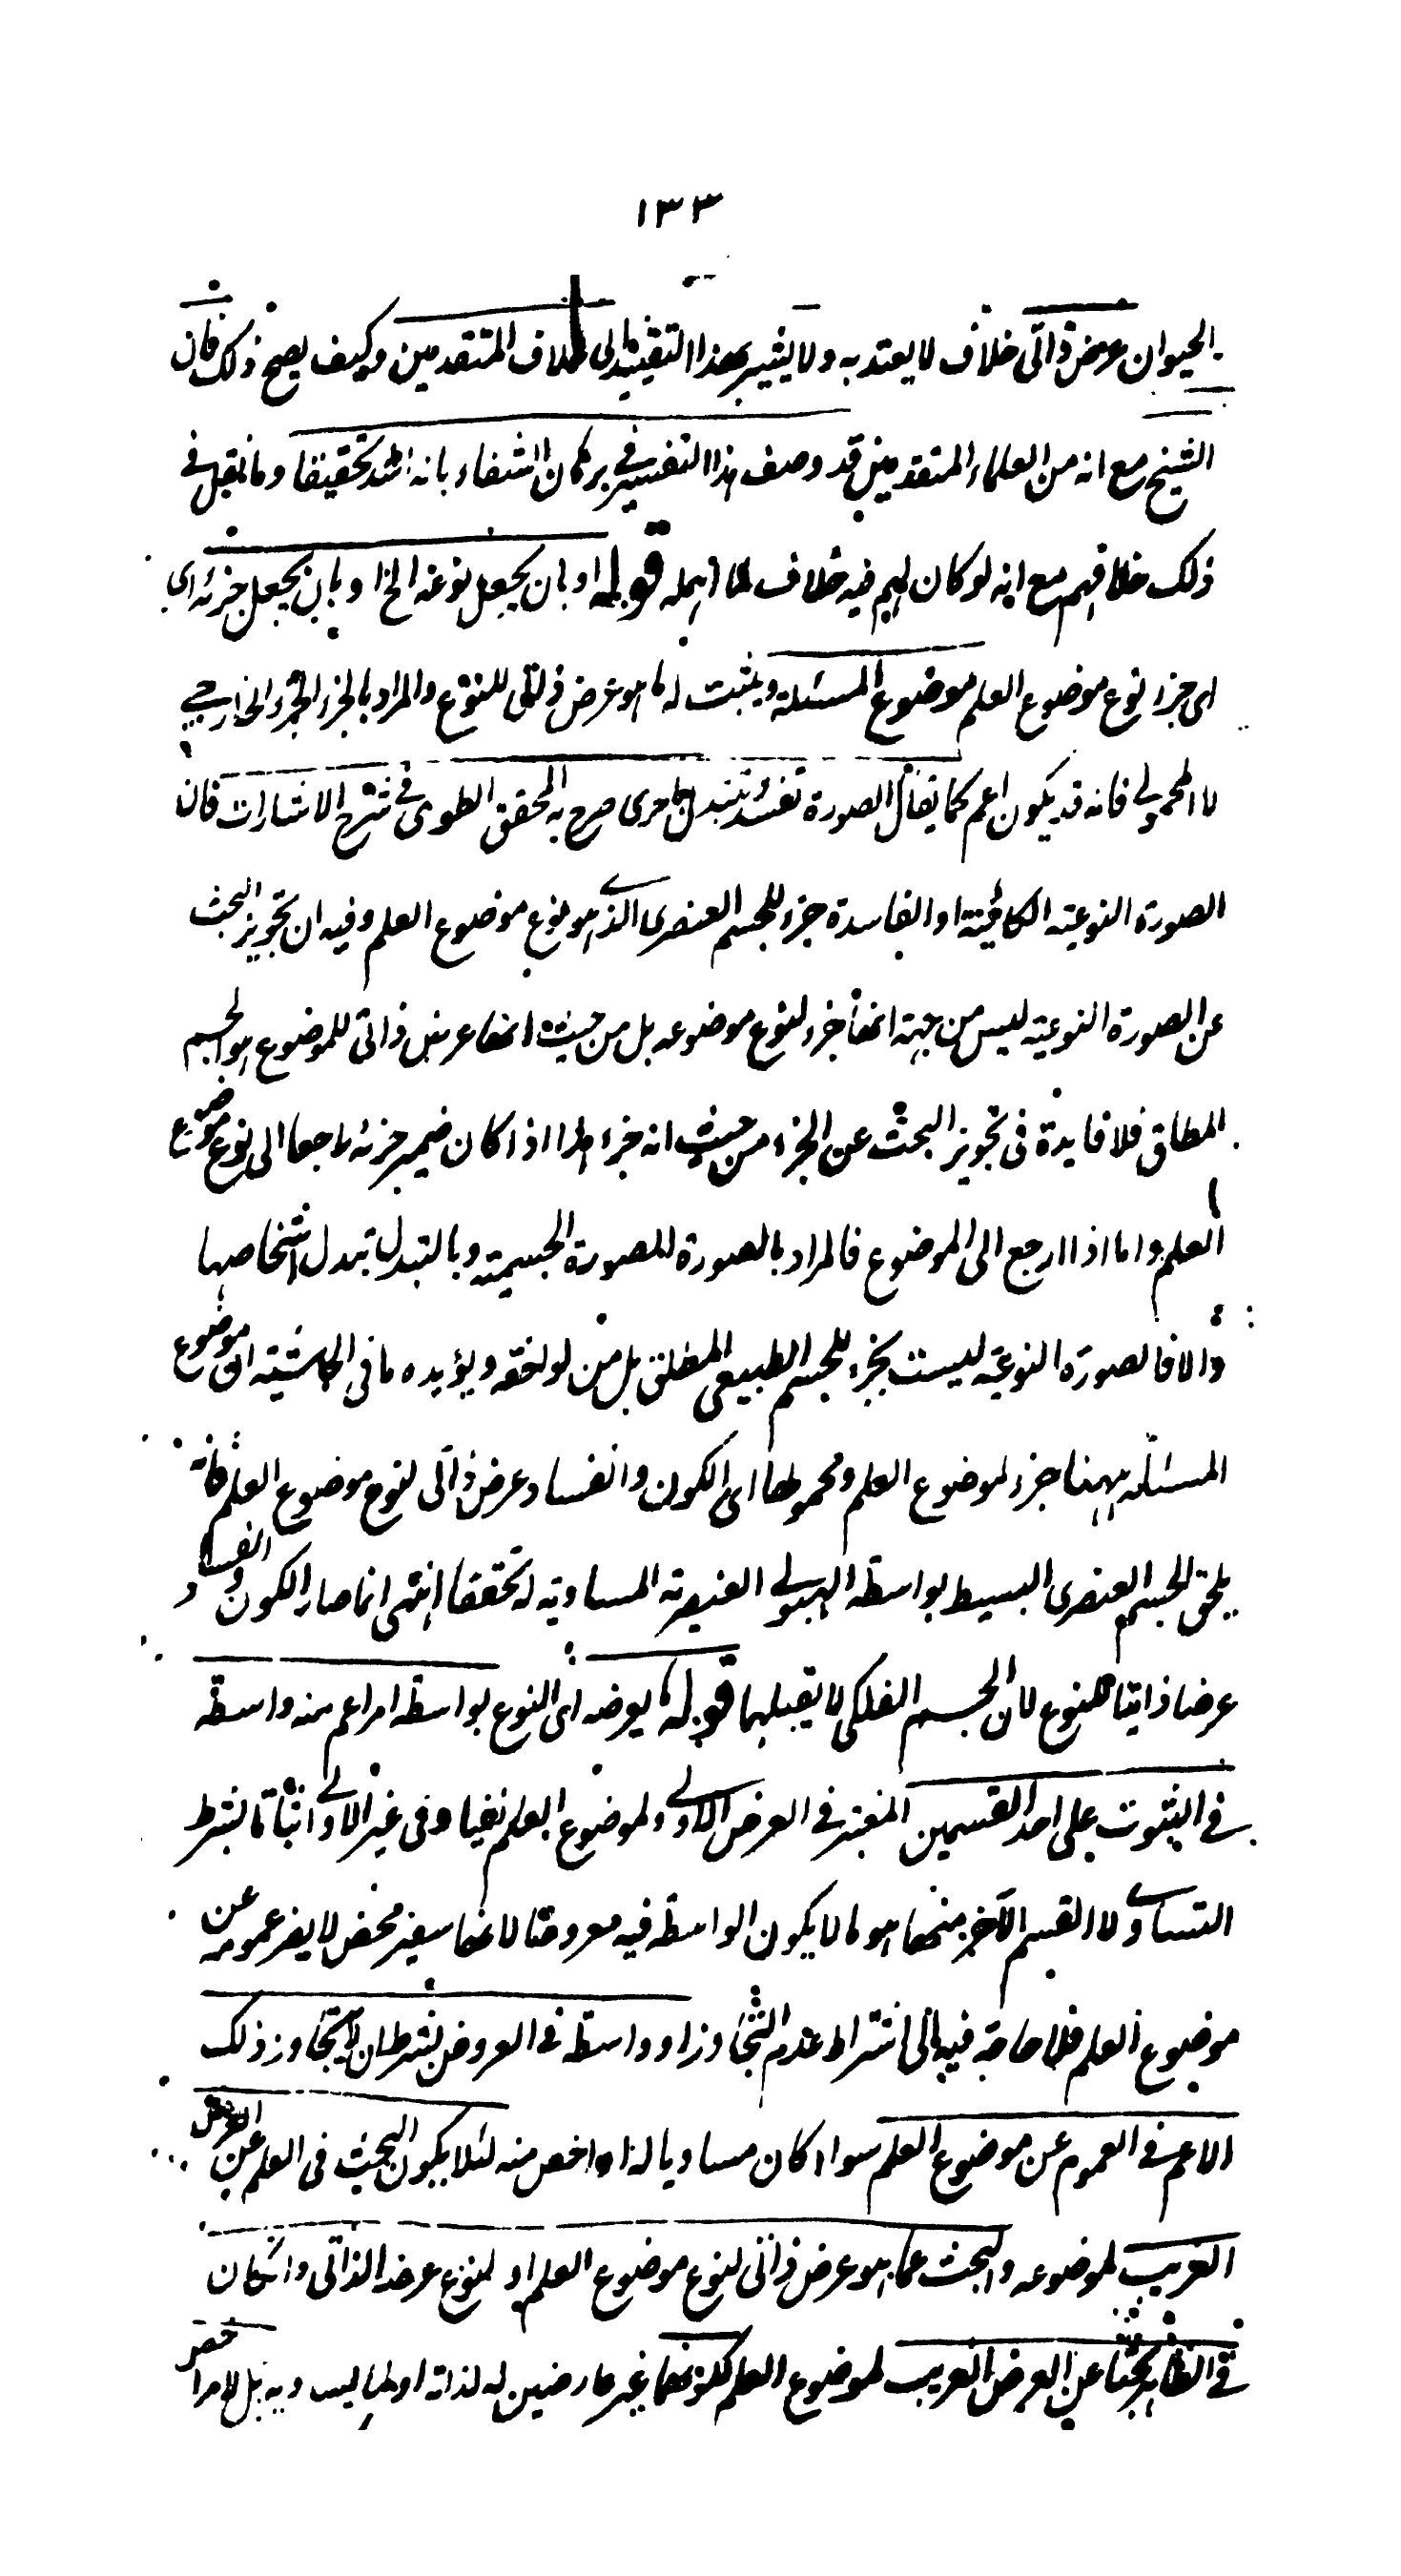 ١٣٣
الحيوان عرض ذاتى خلاف لا يعتد به ولا يشير بهذا التقييد الى خلاف المتقدمين وكيف يصح ذلك فان
الشيخ مع انه من العلماء المتقدمين قد وصف هذا التفسير فى برهان الشفاء بانه اشد تحقيقا وما نقل فى
ذلك خلافهم مع انه لو كان لهم فيه خلاف لما اهمله قوله او بان يجعل نوعه الخ او بان يجعل جزئه اى
اى جزء نوع موضوع العلم موضوع المسئلة ويثبت له ما هو عرض ذاتى للنوع والمراد بالجزء الجزء الخارجى
لا المحمولى فانه قد يكون اعم كما يقال الصورة تفسد وتتبدل باخرى صرح به المحقق الطوسى فى شرح الاشارات فان
الصورة النوعية الكائنة او الفاسدة جزء للجسم العنصرى الذى هو نوع موضوع العلم وفيه ان تجويز البحث
عن الصورة النوعية ليس من جهة انها جزء لنوع موضوعه بل من حيث انها عرض ذاتى للموضوع هو الجسم
المطلق فلا فايدة فى تجويز البحث عن الجزء من حيث انه جزء هذا اذا كان ضمير جزئه راجعا الى نوع موضوع
العلم واما اذا ارجع الى الموضوع فالمراد بالصورة الصورة الجسمية وبالتبدل تبدل اشخاصها
والا فالصورة النوعية ليست بجزء للجسم الطبيعى المطلق بل من لواحقه ويؤيده ما فى الحاشية ان موضوع
المسئلة ههنا جزء لموضوع العلم ومحمولها اى الكون والفساد عرض ذاتى لنوع موضوع العلم فانه
يلحق الجسم العنصرى البسيط بواسطة الهيولى العنصرية المساوية له تحققا انتهى انما صار الكون والفساد
عرضا ذاتيا للنوع لان الجسم الفلكى لا يقبلهما قوله ما يعرضه اى النوع بواسطة امر اعم منه واسطة
فى الثبوت على احد القسمين المعتبر فى العرض الاولى ولموضوع العلم نفيا وفى غير الاولى اثباتا بشرط
التساوى لا القسم الآخر منها هو ما لا يكون الواسطة فيه معروضا لانها سفير محض لا يضر عمومه عن
موضوع العلم فلا حاجة فيه الى اشتراط عدم التجاوز او واسطة فى العروض بشرط ان لا يتجاوز ذلك
الاعم فى العموم عن موضوع العلم سواء كان مساويا له او اخص منه لئلا يكون البحث فى العلم عن العرض
الغريب لموضوعه والبحث عما هو عرض ذاتى لنوع موضوع العلم او لنوع عرضه الذاتى وان كان
فى الظاهر بحثا عن العرض الغريب لموضوع العلم لكونهما غير عارضين له لذاته او لما يساويه بل لامر اخص